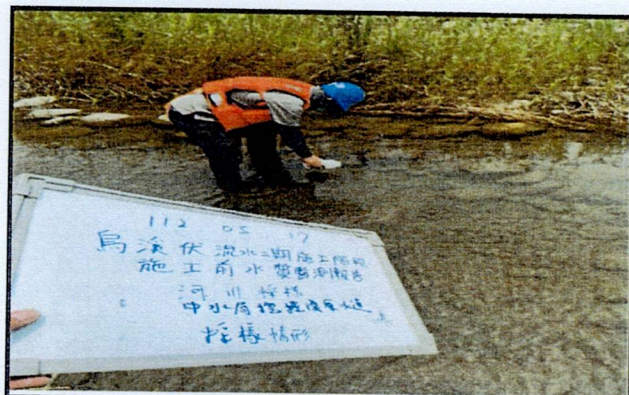 112 05 17
烏溪伏流水二期施工階段
施工前水質監測報告
河川採樣
中水局
採樣情形